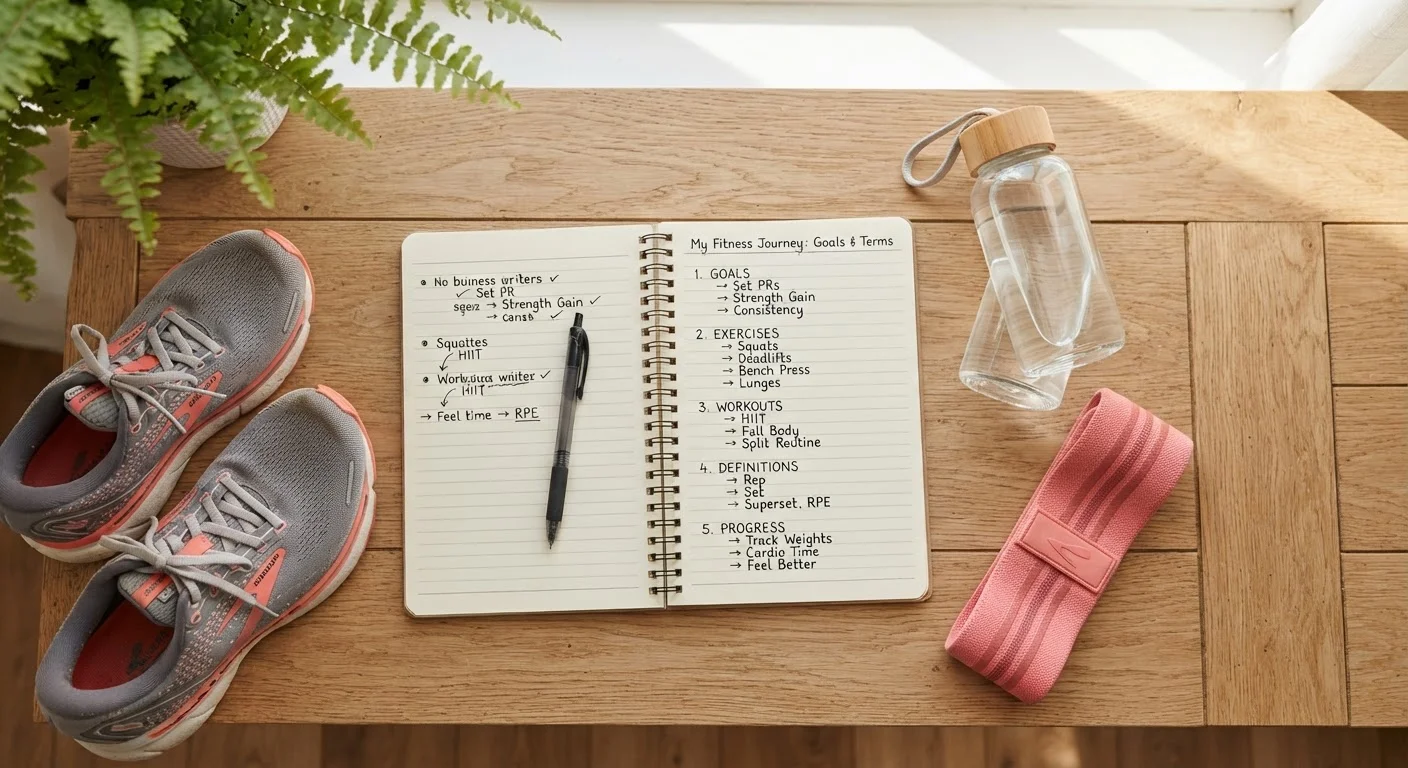 No business writers ✓
✓ Set PR
→ Strength Gain ✓
→ ✓
Squattes
HIIT
writer ✓
HIIT
→ Feel time → RPE
My Fitness Journey: Goals & Terms
1. GOALS
→ Set PRs
→ Strength Gain
→ Consistency
2. EXERCISES
→ Squats
→ Deadlifts
→ Bench Press
→ Lunges
3. WORKOUTS
→ HIIT
→ Fall Body
→ Split Routine
4. DEFINITIONS
→ Rep
→ Set
→ Superset, RPE
5. PROGRESS
→ Track Weights
→ Cardio Time
→ Feel Better